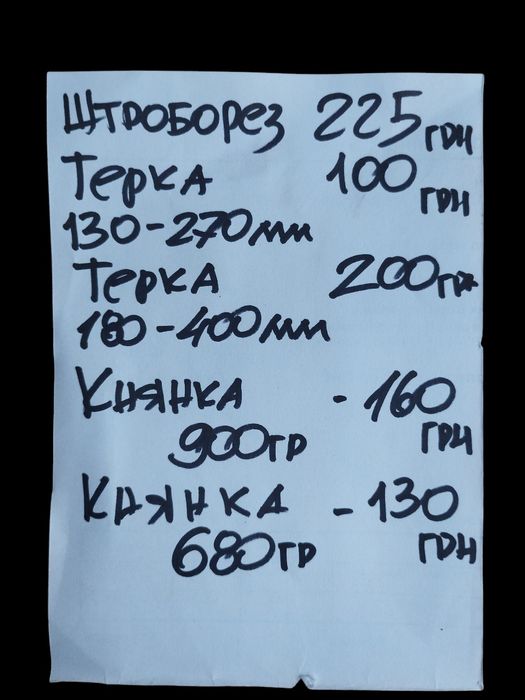 Штроборез 225 грн
Терка 100 грн
130-270мм
Терка 200грн
180-400мм
Киянка - 160 грн
900гр
Киянка - 130 грн
680гр